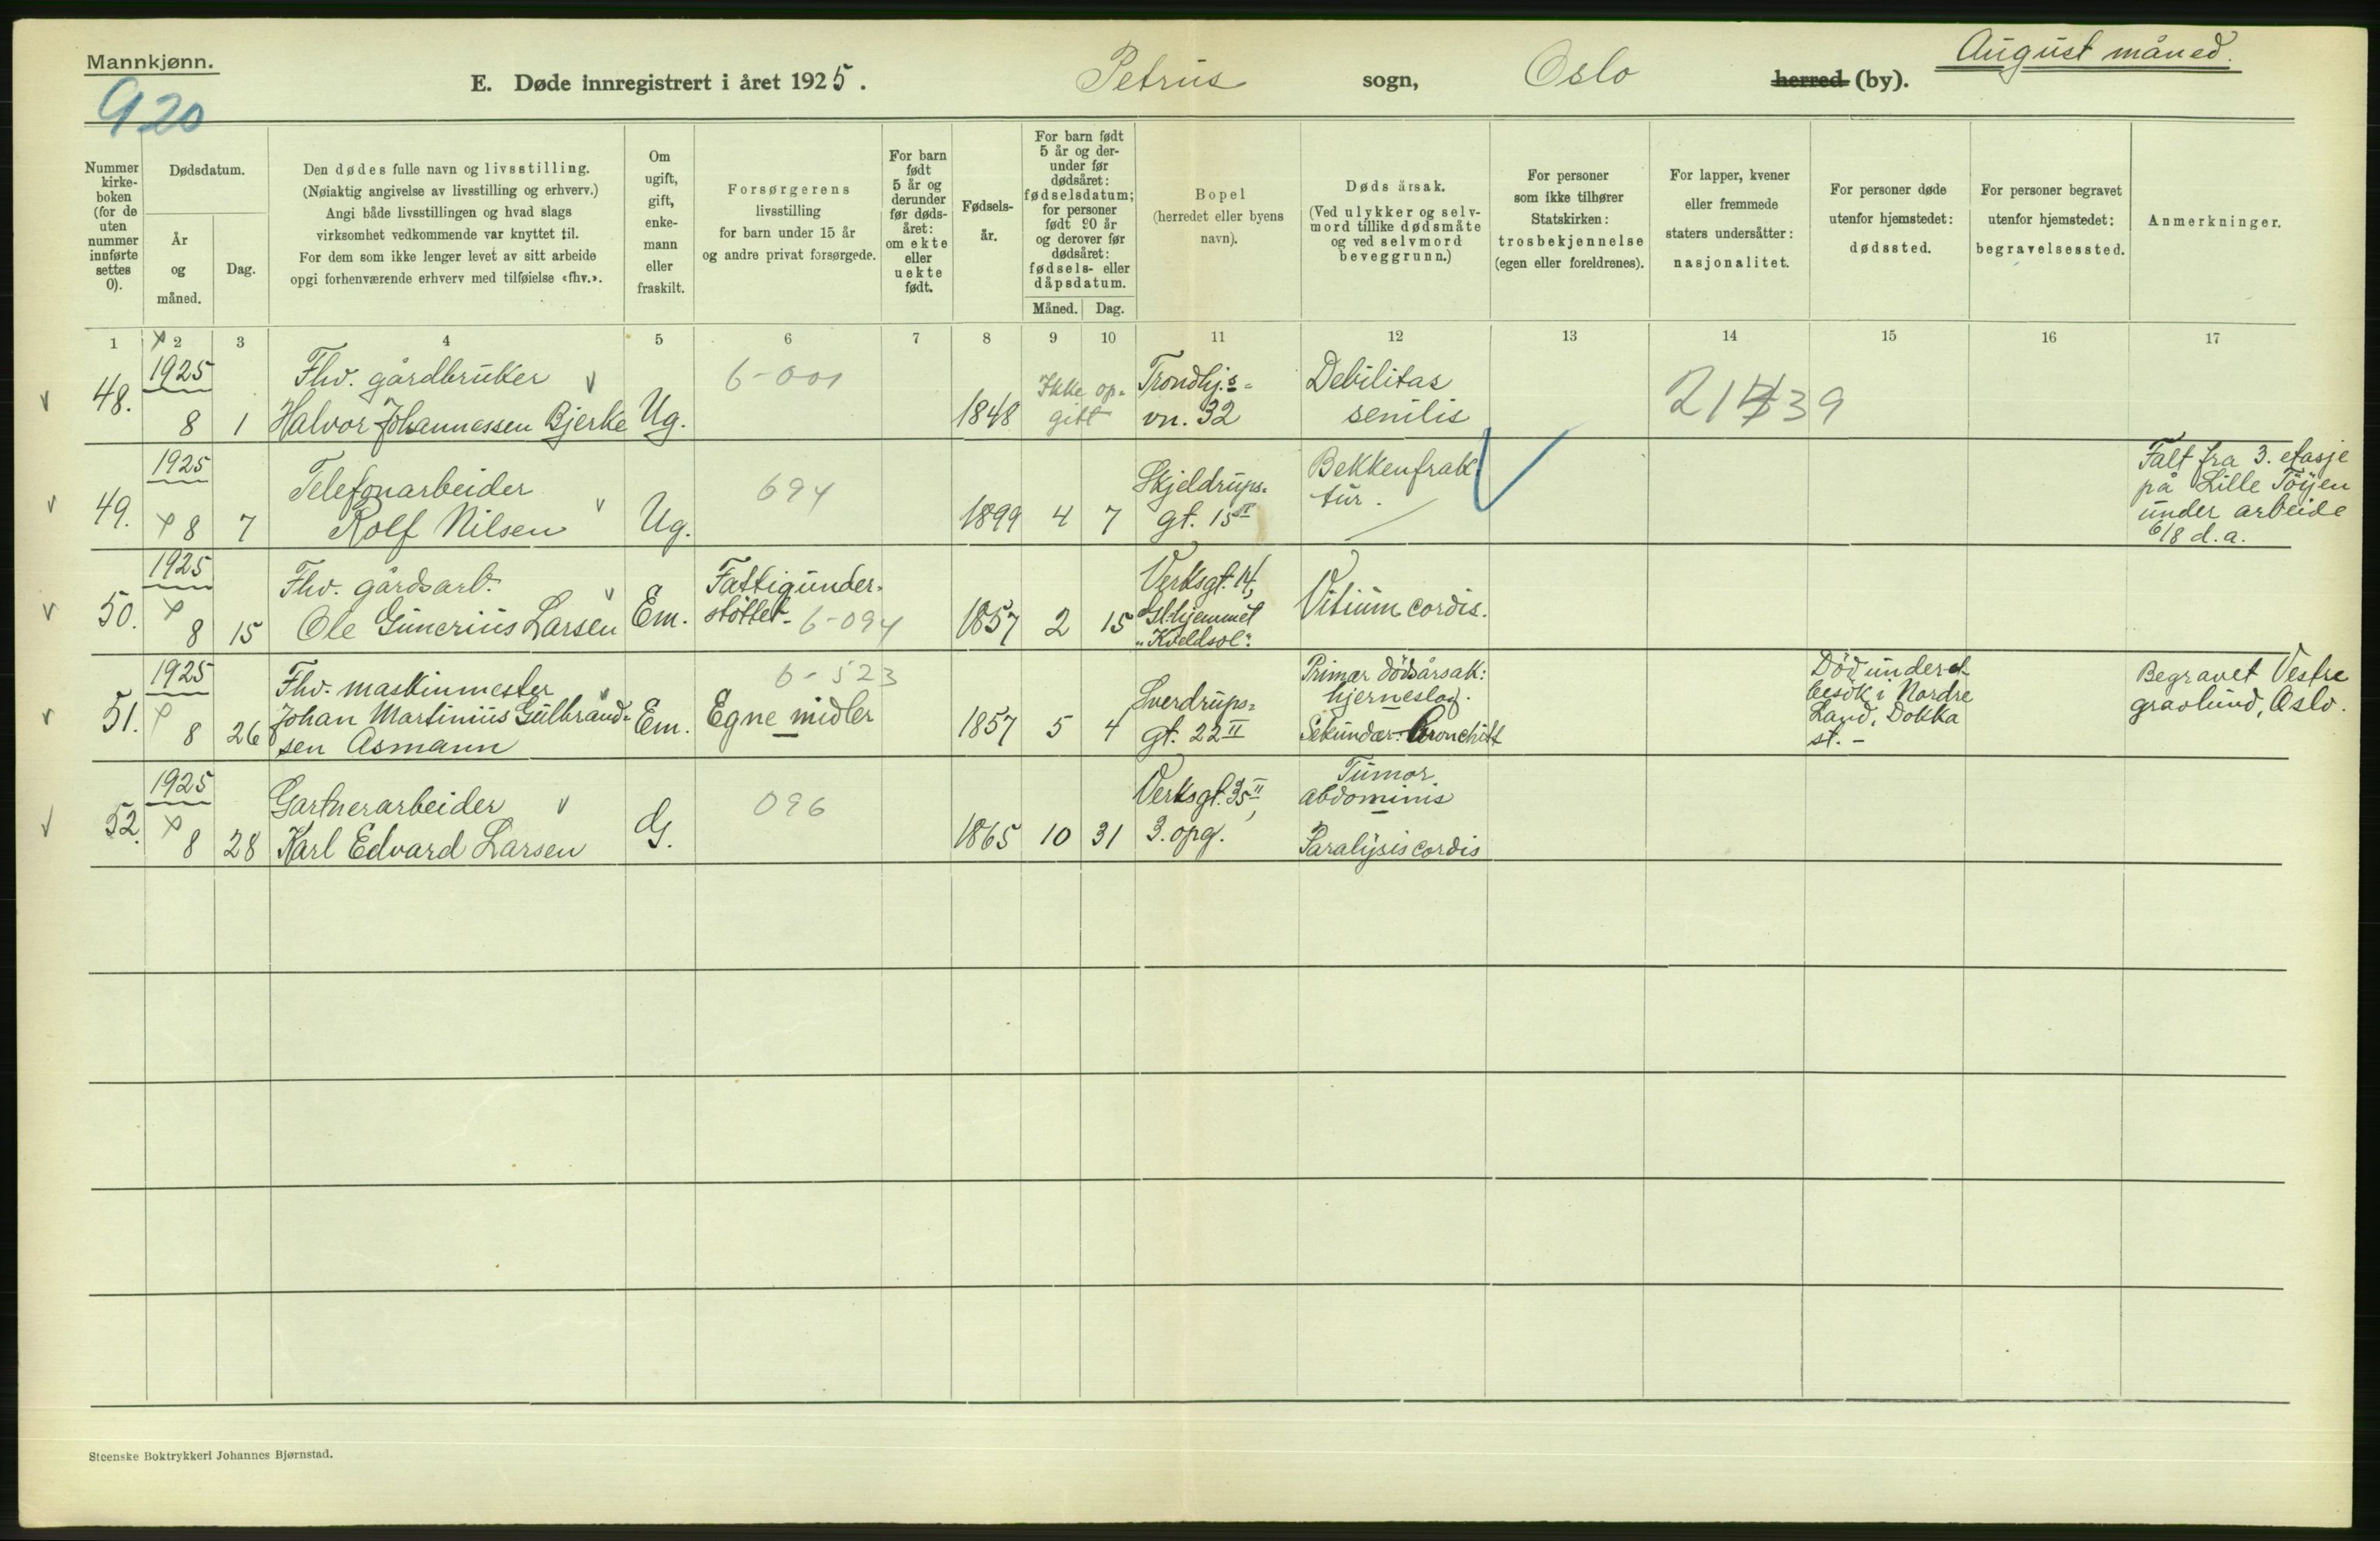 Mannkjønn.
920
E. Døde innregistrert i året 1925. Petrus sogn, Oslo herred (by). August måned.
Nummer
kirke-
boken
(for de
uten
nummer
innførte
settes
0).
Dødsdatum.
År
og
måned.
Dag.
Den dødes fulle navn og livsstilling.
(Nøiaktig angivelse av livsstilling og erhverv.)
Angi både livsstillingen og hvad slags
virksomhet vedkommende var knyttet til.
For dem som ikke lenger levet av sitt arbeide
opgi forhenværende erhverv med tilføielse «fhv.».
Om
ugift,
gift,
enke-
mann
eller
fraskilt.
Forsørgerens
livsstilling
for barn under 15 år
og andre privat forsørgede.
For barn
født
5 år og
derunder
før døds-
året:
om ekte
eller
uekte
født.
Fødsels-
år.
For barn født
5 år og der-
under før
dødsåret:
fødselsdatum;
for personer
født 90 år
og derover før
dødsåret:
fødsels- eller
dåpsdatum.
Måned. Dag.
Bopel
(herredet eller byens
navn).
Dødsårsak.
(Ved ulykker og selv-
mord tillike dødsmåte
og ved selvmord
beveggrunn.)
For personer
som ikke tilhører
Statskirken:
trosbekjennelse
(egen eller foreldrenes).
For lapper, kvener
eller fremmede
staters undersåtter:
nasjonalitet.
For personer døde
utenfor hjemstedet:
dødssted.
For personer begravet
utenfor hjemstedet:
begravelsessted.
Anmerkninger.
1 2 3 4 5 6 7 8 9 10 11 12 13 14 15 16 17
48.
1925
8 1
Fhv. gårdbruker
Halvor Johannessen Bjerke
Ug.
6-001
1848
Ikke op-
gitt
Trondhj.s-
vn. 32
Debilitas
senilis
49.
1925
8 7
Telefonarbeider
Rolf Nilsen
Ug.
694
1899 4 7
Skjeldrups-
gt. 15 II
Bekkenfrak-
tur.
Falt fra 3. etasje
på Lille Töyen
under arbeide
6/8 d.a.
50.
1925
8 15
Fhv. gårdsarb.
Ole Gunerius Larsen
Em.
Fattigunder-
støttet- 6-094
1857 2 15
Verksgt. 14,
Gl.hjemmet
"Kveldsol".
Vitium cordis.
51.
1925
8 26
Fhv. maskinmester
Johan Martinius Gulbrand-
sen Asmann
Em.
6-523
Egne midler
1857 5 4
Sverdrups-
gt. 22 II
Primær dödsårsak:
hjerneslag.
Sekundær: Bronchitt
Död under et
besök i Nordre
Land, Dokka
st. -
Begravet Vestre
gravlund, Oslo.
52.
1925
8 28
Gartnerarbeider
Karl Edvard Larsen
G.
096
1865 10 31
Verksgt. 35 II,
3. opg.
Tumor
abdominis
Paralysis cordis
Steenske Boktrykkeri Johannes Bjørnstad.